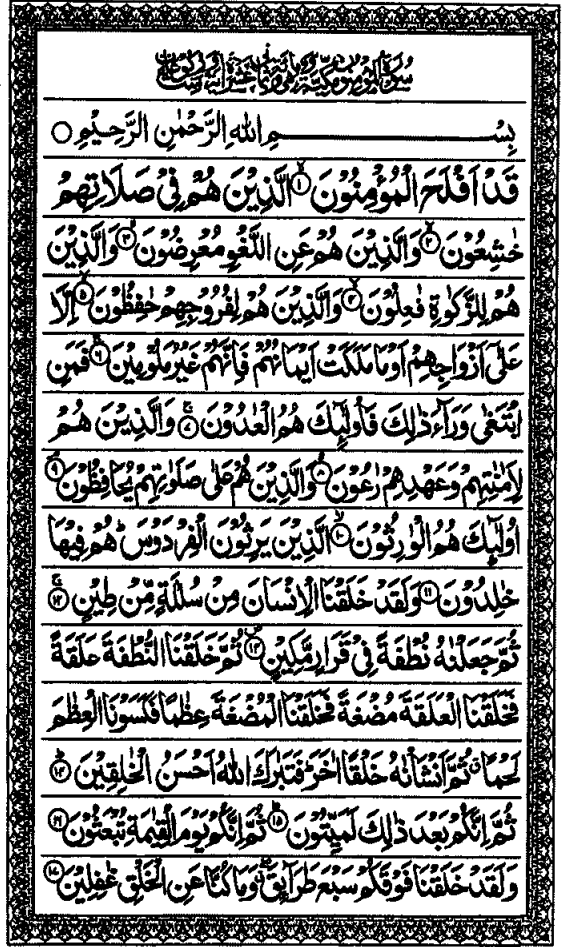 بِسْمِ اللّٰهِ الرَّحْمٰنِ الرَّحِيْمِ ○
قَدْ اَفْلَحَ الْمُؤْمِنُوْنَ ۙ﴿۱﴾ الَّذِيْنَ هُمْ فِيْ صَلَاتِهِمْ
خٰشِعُوْنَ ۙ﴿۲﴾ وَالَّذِيْنَ هُمْ عَنِ اللَّغْوِ مُعْرِضُوْنَ ۙ﴿۳﴾ وَالَّذِيْنَ
هُمْ لِلزَّكٰوةِ فٰعِلُوْنَ ۙ﴿۴﴾ وَالَّذِيْنَ هُمْ لِفُرُوْجِهِمْ حٰفِظُوْنَ ۙ﴿۵﴾ اِلَّا
عَلٰٓى اَزْوَاجِهِمْ اَوْمَا مَلَكَتْ اَيْمَانُهُمْ فَاِنَّهُمْ غَيْرُ مَلُوْمِيْنَ ۚ﴿۶﴾ فَمَنِ
ابْتَغٰى وَرَآءَ ذٰلِكَ فَاُولٰٓئِكَ هُمُ الْعٰدُوْنَ ۚ﴿۷﴾ وَالَّذِيْنَ هُمْ
لِاَمٰنٰتِهِمْ وَعَهْدِهِمْ رٰعُوْنَ ۙ﴿۸﴾ وَالَّذِيْنَ هُمْ عَلٰى صَلَوٰتِهِمْ يُحَافِظُوْنَ ۘ﴿۹﴾
اُولٰٓئِكَ هُمُ الْوٰرِثُوْنَ ۙ﴿۱۰﴾ الَّذِيْنَ يَرِثُوْنَ الْفِرْدَوْسَ ؕ هُمْ فِيْهَا
خٰلِدُوْنَ ﴿۱۱﴾ وَلَقَدْ خَلَقْنَا الْاِنْسَانَ مِنْ سُلٰلَةٍ مِّنْ طِيْنٍ ۚ﴿۱۲﴾
ثُمَّ جَعَلْنٰهُ نُطْفَةً فِيْ قَرَارٍ مَّكِيْنٍ ۪﴿۱۳﴾ ثُمَّ خَلَقْنَا النُّطْفَةَ عَلَقَةً
فَخَلَقْنَا الْعَلَقَةَ مُضْغَةً فَخَلَقْنَا الْمُضْغَةَ عِظٰمًا فَكَسَوْنَا الْعِظٰمَ
لَحْمًا ۗ ثُمَّ اَنْشَاْنٰهُ خَلْقًا اٰخَرَ ؕ فَتَبٰرَكَ اللّٰهُ اَحْسَنُ الْخٰلِقِيْنَ ؕ﴿۱۴﴾
ثُمَّ اِنَّكُمْ بَعْدَ ذٰلِكَ لَمَيِّتُوْنَ ؕ﴿۱۵﴾ ثُمَّ اِنَّكُمْ يَوْمَ الْقِيٰمَةِ تُبْعَثُوْنَ ﴿۱۶﴾
وَلَقَدْ خَلَقْنَا فَوْقَكُمْ سَبْعَ طَرَآئِقَ ۖ وَمَا كُنَّا عَنِ الْخَلْقِ غٰفِلِيْنَ ﴿۱۷﴾